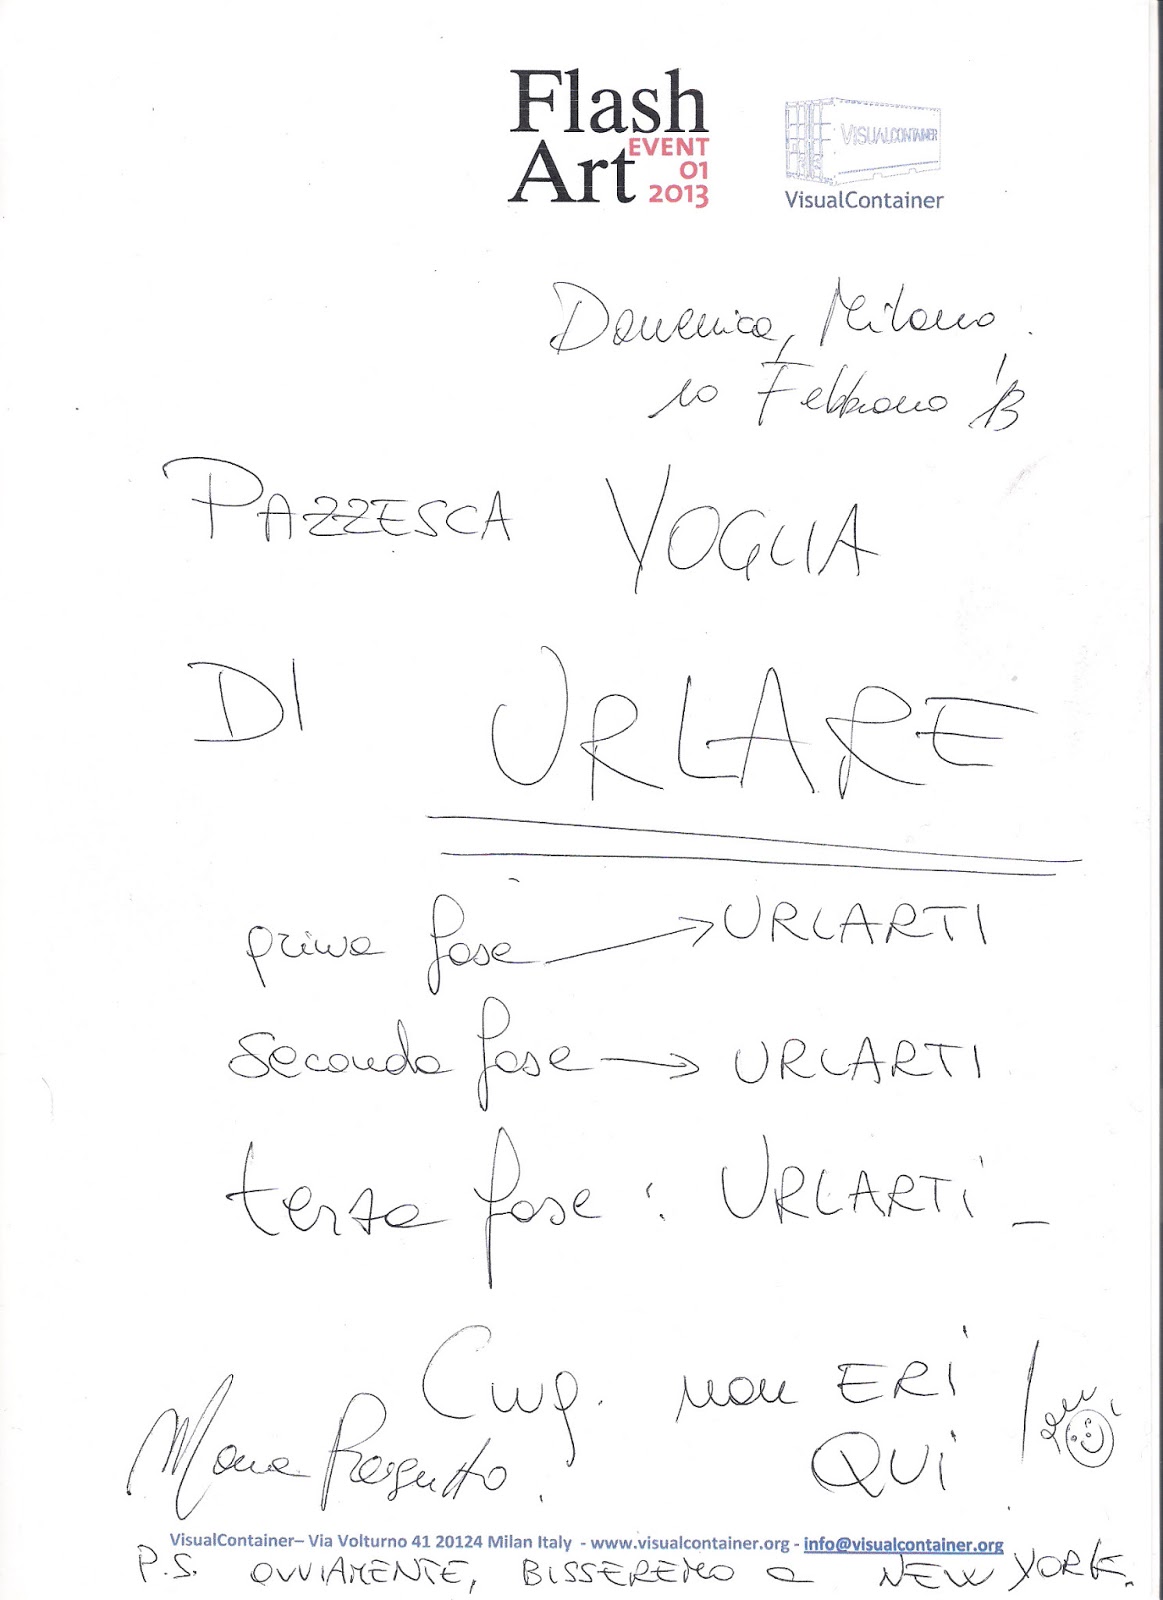 Flash
Art EVENT
01
2013
VISUALCONTAINER
VisualContainer
Domenica, Milano
10 Febbraio '13
PAZZESCA VOGLIA
DI URLARE
prima fase → URLARTI
seconda fase → URLARTI
terza fase : URLARTi
Cmq. non ERi
QUi
VisualContainer– Via Volturno 41 20124 Milan Italy - www.visualcontainer.org - info@visualcontainer.org
P.S. OVVIAMENTE, BISSEREMO a NEW YORK.